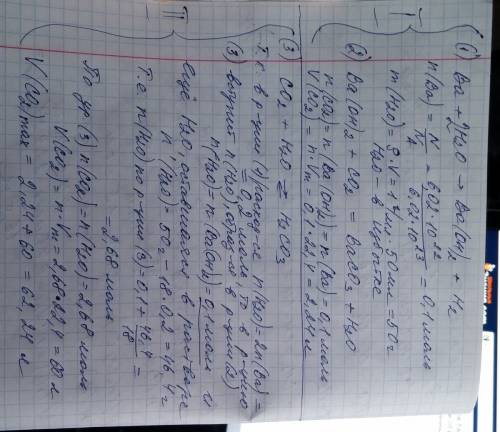 I
① Ba + 2H2O → Ba(OH)2 + H2
n(Ba) = N/NA = 6,02·10^22 / 6,02·10^23 = 0,1 моль
m(H2O) = ρ·V = 1 г/мл · 50 мл = 50 г
H2O - в избытке
② Ba(OH)2 + CO2 = BaCO3 + H2O
n(CO2) = n(Ba(OH)2) = n(Ba) = 0,1 моль
V(CO2) = n·Vm = 0,1 · 22,4 = 2,24 л
II
③ CO2 + H2O ⇄ H2CO3
Т.к. в р-ции (1) расход-я n(H2O) = 2n(Ba) =
= 0,2 моль, то в р-цию
(3) вступит n(H2O), образ-я в р-ции (2)
n(H2O) = n(Ba(OH)2) = 0,1 моль и
ещё H2O, оставшаяся в растворе
n'(H2O) = 50г - 18·0,2 = 46,4 г
Т.е. n(H2O) по р-ции (3) = 0,1 + 46,4/18 =
= 2,68 моль
По ур. (3) n(CO2) = n(H2O) = 2,68 моль
V(CO2) = n·Vm = 2,68·22,4 = 60 л
V(CO2)max = 2,24 + 60 = 62,24 л